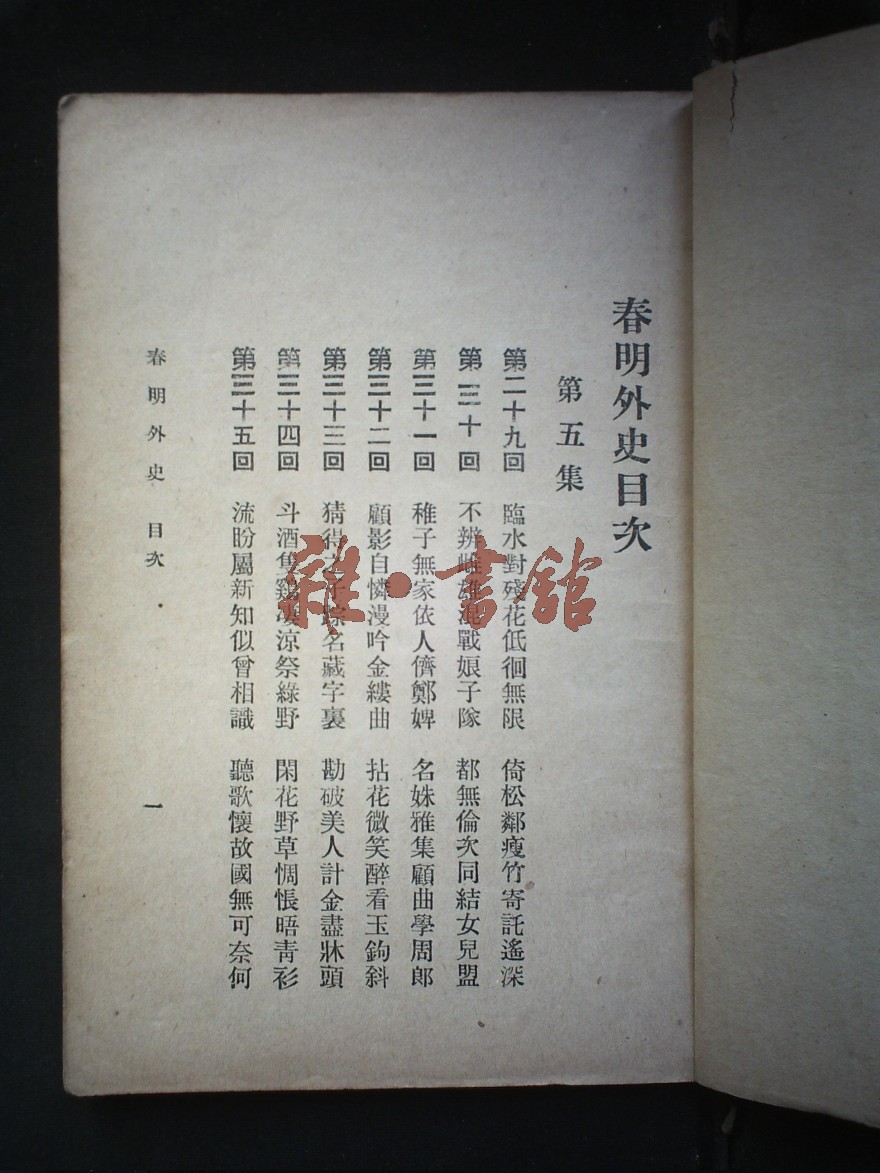 春明外史目次
第五集
第二十九回 臨水對殘花低徊無限 倚松鄰瘦竹寄託遙深
第三十回 不辨雌雄混戰娘子隊 都無倫次同結女兒盟
第三十一回 稚子無家依人儕鄭婢 名姝雅集顧曲學周郎
第三十二回 顧影自憐漫吟金縷曲 拈花微笑醉看玉鉤斜
第三十三回 猜得之子綜名藏字裏 勘破美人計金盡牀頭
第三十四回 斗酒隻鷄凄涼祭綠野 閑花野草惆悵晤青衫
第三十五回 流盼屬新知似曾相識 聽歌懷故國無可奈何
春明外史 目次 一
雜·書館